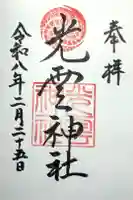 奉拝
光雲神社
令和八年二月二十五日